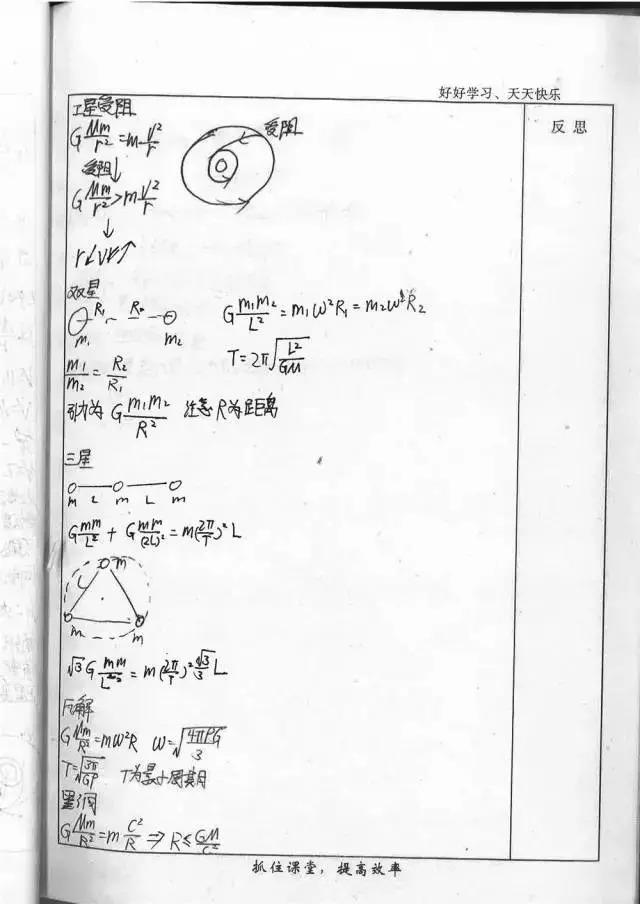 好好学习、天天快乐
反思
卫星受阻
G Mm/r² = m v²/r
受阻
受阻↓
G Mm/r² > m v²/r
↓
r↙v↗
双星
R₁ R₂
m₁ m₂
G m₁m₂/L² = m₁ω²R₁ = m₂ω²R₂
T = 2π√(L³/GM)
m₁/m₂ = R₂/R₁
引力为 G m₁m₂/R² 注意 R为距离
三星
m L m L m
G mm/L² + G mm/(2L)² = m(2π/T)² L
m
L
m m
√3 G mm/L² = m(2π/T)² √3/3 L
瓦解
G Mm/R² = mω²R ω = √(4πρG/3)
T = √(3π/Gρ) T为最小周期
黑洞
G Mm/R² = m C²/R ⇒ R ≤ GM/C²
抓住课堂，提高效率